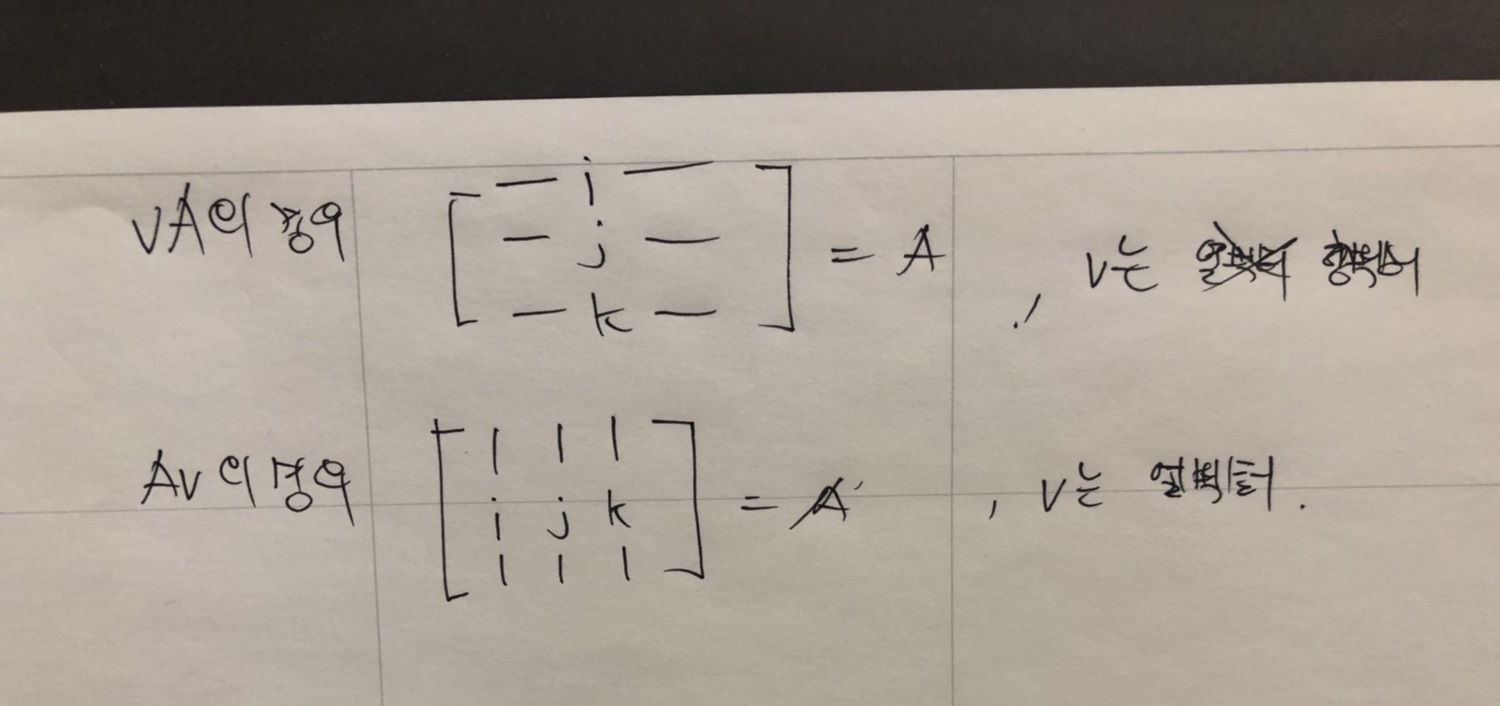 vA의 경우 [ — i — = A , v는 행벡터
— j —
— k — ]
Av의 경우 [ | | |
i j k = A , v는 열벡터.
| | | ]